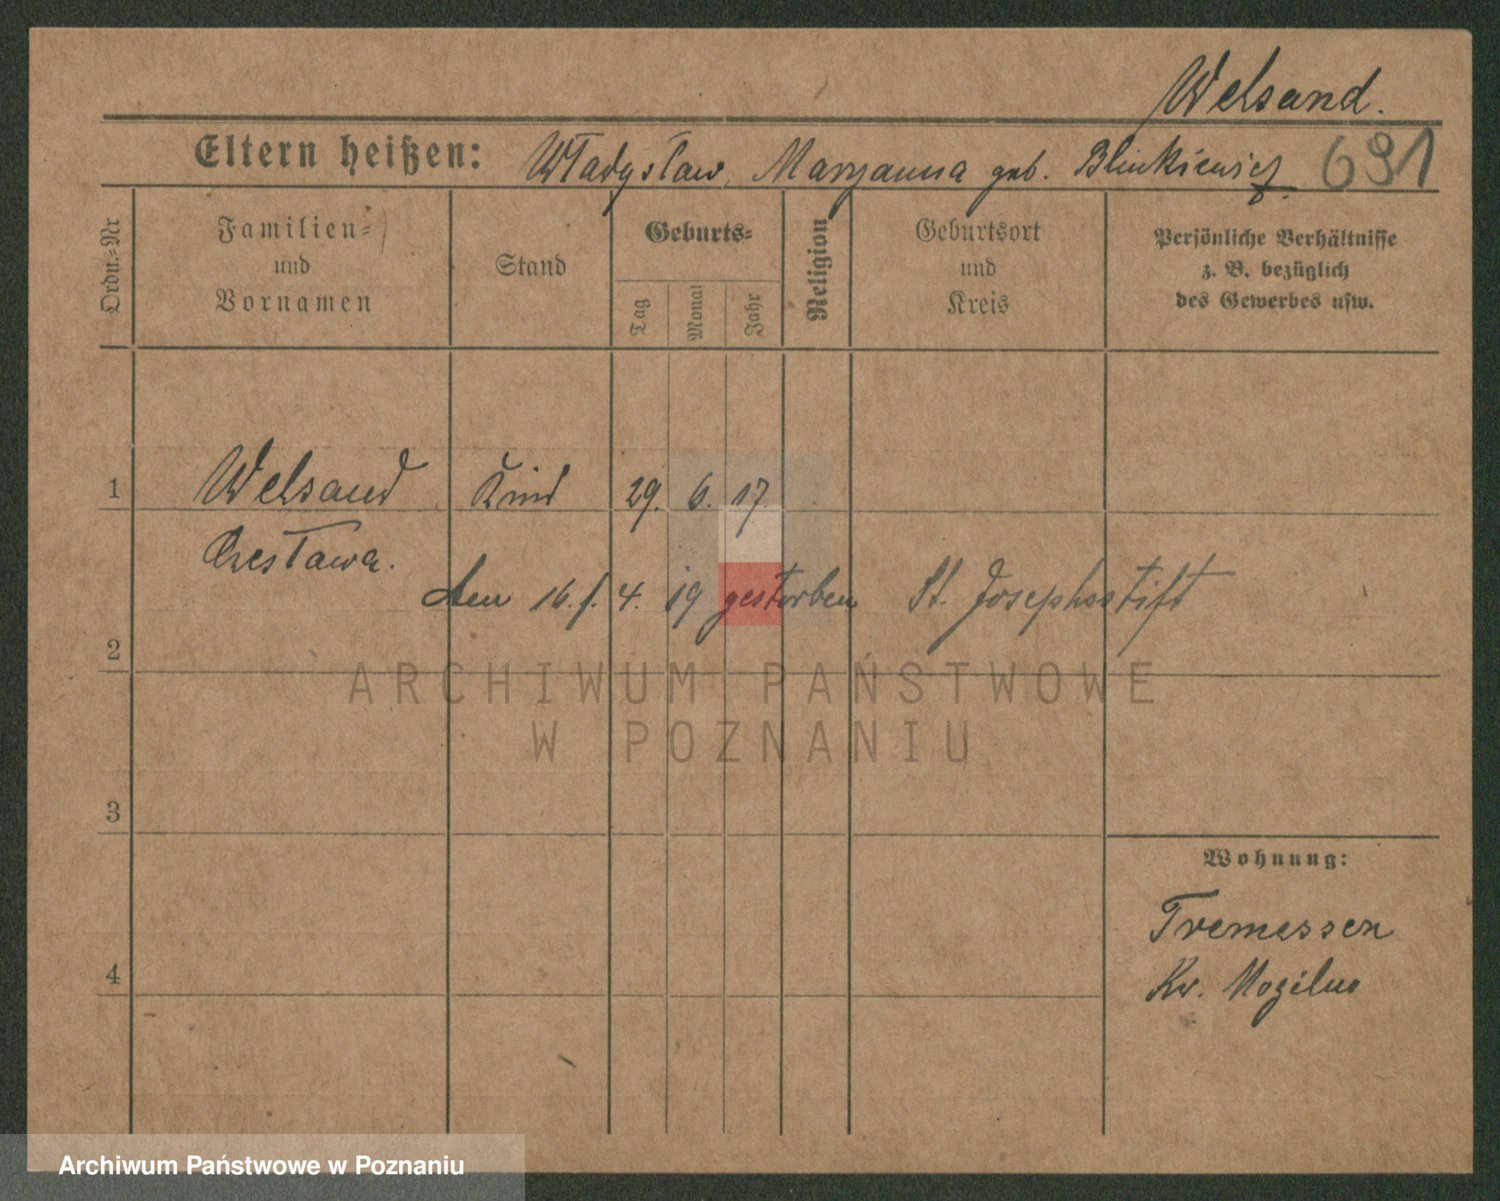 Welsand.
Eltern heißen: Władysław, Maryanna geb. Blinkiewicz. 691
Ordn.-Nr
Familien- und Vornamen
Stand
Geburts-
Tag
Monat
Jahr
Religion
Geburtsort und Kreis
Persönliche Verhältnisse
z. B. bezüglich
des Gewerbes usw.
1 Welsand Kind 29. 6. 17.
Czesława.
den 16. 4. 19 gestorben St. Josephsstift
2
ARCHIWUM PAŃSTWOWE
W POZNANIU
3
Wohnung:
Tremessen
4
Kr. Mogilno
Archiwum Państwowe w Poznaniu